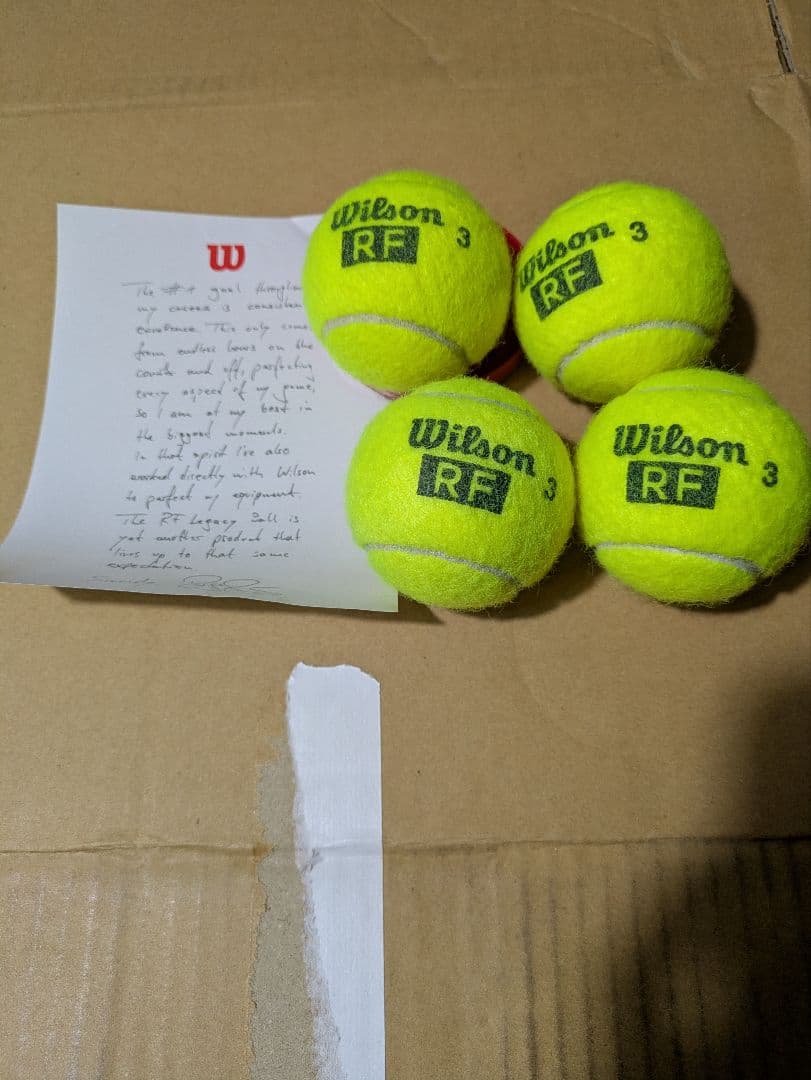 W
The #1 goal throughou
my career is consisten
excellence. This only come
from endless hours on the
courts and off, perfecting
every aspect of my game,
so I am at my best in
the biggest moments.
In that spirit I've also
worked directly with Wilson
to perfect my equipment.
The RF Legacy Ball is
yet another product that
lives up to that same
expectation.
Wilson 3
RF
Wilson 3
RF
Wilson 3
RF
Wilson 3
RF